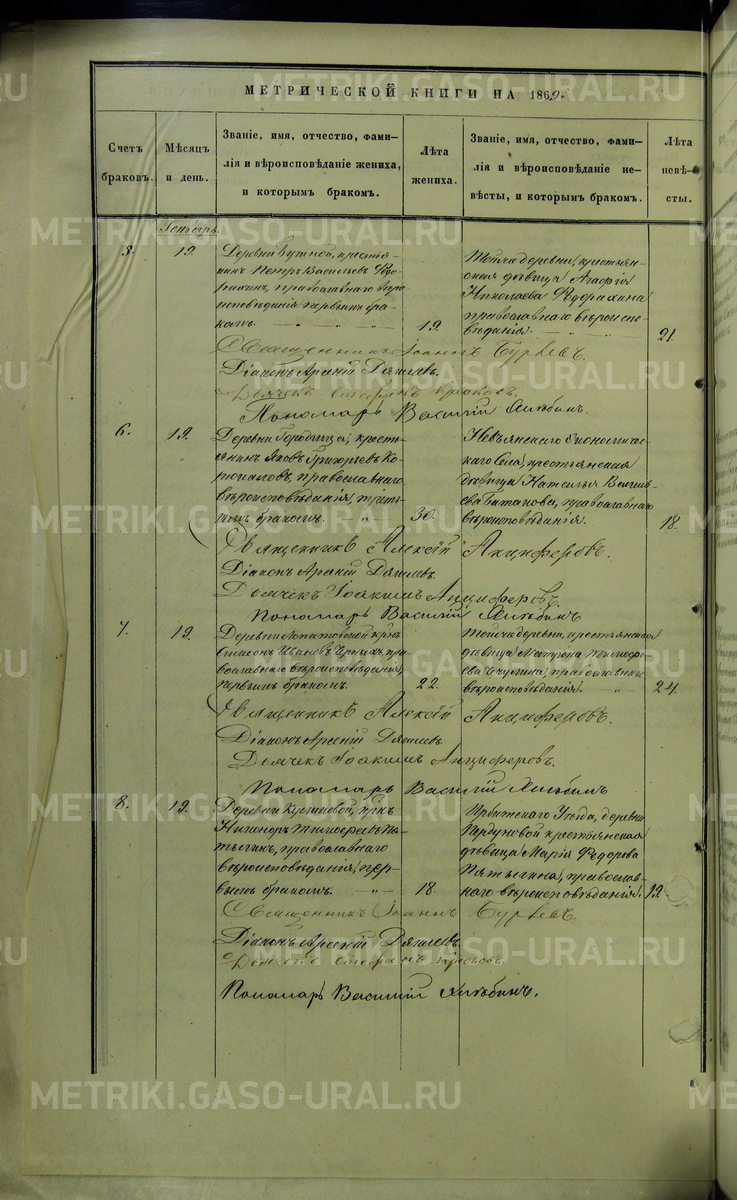 МЕТРИЧЕСКОЙ КНИГИ НА 1869.
Счетъ браковъ.
Мѣсяцъ и день.
Званіе, имя, отчество, фами-
лія и вѣроисповѣданіе жениха,
и которымъ бракомъ.
Лѣта
жениха.
Званіе, имя, отчество, фами-
лія и вѣроисповѣданіе не-
вѣсты, и которымъ бракомъ.
Лѣта
невѣ-
сты.
19.
Деревни крестья-
нинъ Петръ Василіевъ
православнаго вѣро
исповѣданія первымъ бра-
комъ.
19.
Тойже деревни, крестьян-
ская дѣвица Агафія
Николаева
православнаго вѣроиспо-
вѣданія.
21.
Священникъ Іоаннъ Бурцевъ.
Діаконъ Арсеній Дягилевъ.
Дьячекъ Стефанъ
Пономарь Василій Хлѣбинъ.
6.
19.
Деревни Городища, кресть-
янинъ Яковъ Григорьевъ Ко-
православнаго
вѣроисповѣданія, треть-
имъ бракомъ.
36.
Невьянскаго
Села, крестьянская
дѣвица Наталья
православнаго
вѣроисповѣданія.
18.
Священникъ Алексій Анциферовъ.
Діаконъ Арсеній Дягилевъ
Дьячекъ Іоакимъ Анциферовъ
Пономарь Василій Хлѣбинъ
7.
19.
Деревни крнъ
Симеонъ Ивановъ Черныхъ, пра-
вославнаго вѣроисповѣданія,
первымъ бракомъ.
22.
Тойже деревни, крестьянская
дѣвица Матрона Тимофе-
ева православнаго
вѣроисповѣданія.
24.
Священникъ Алексій Анциферовъ.
Діаконъ Арсеній Дягилевъ.
Дьячекъ Іоакимъ Анциферовъ.
Пономарь Василій Хлѣбинъ
8.
19.
Деревни крнъ
Никаноръ Тимофеевъ
православнаго
вѣроисповѣданія, пер-
вымъ бракомъ.
18.
Ирбитскаго Уѣзда, деревни
крестьянская
дѣвица Марія Федорова
Пятыгина, православ-
наго вѣроисповѣданія.
19.
Священникъ Іоаннъ Бурцевъ.
Діаконъ Арсеній Дягилевъ.
Дьячекъ Стефанъ
Пономарь Василій Хлѣбинъ.
METRIKI.GASO-URAL.RU